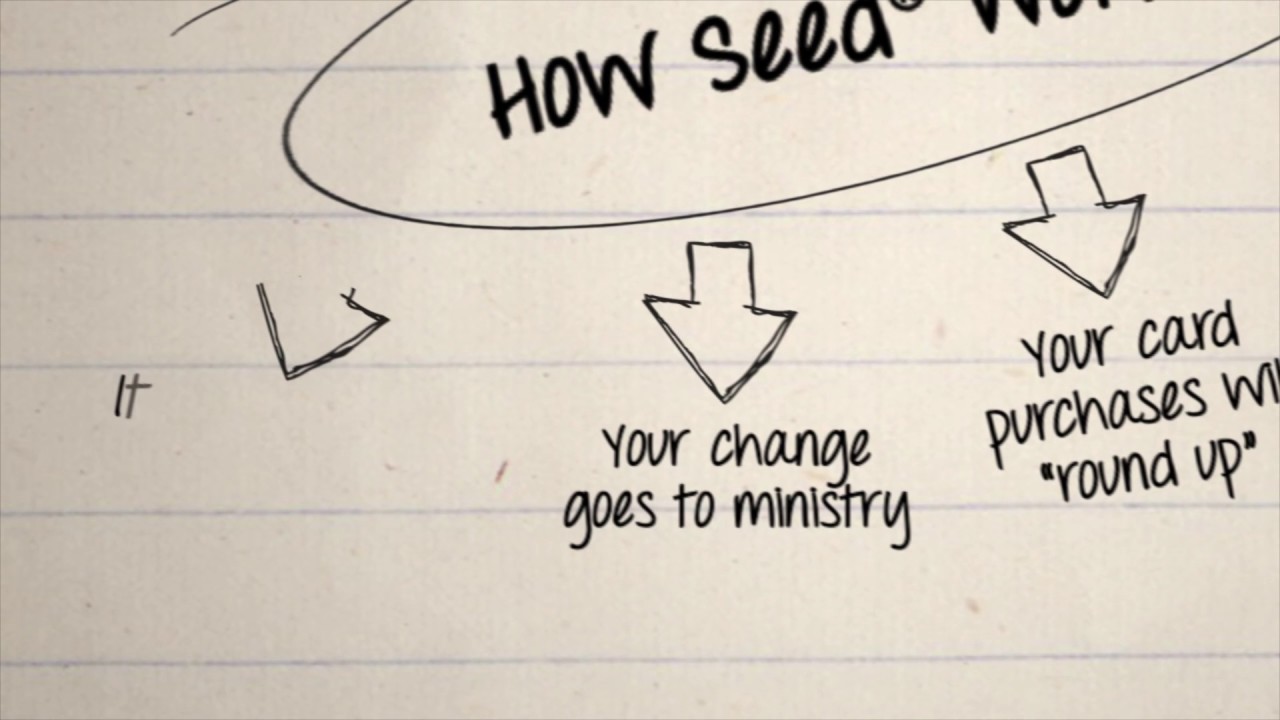 How Seed®
It
Your change
goes to ministry
Your card
purchases
"round up"